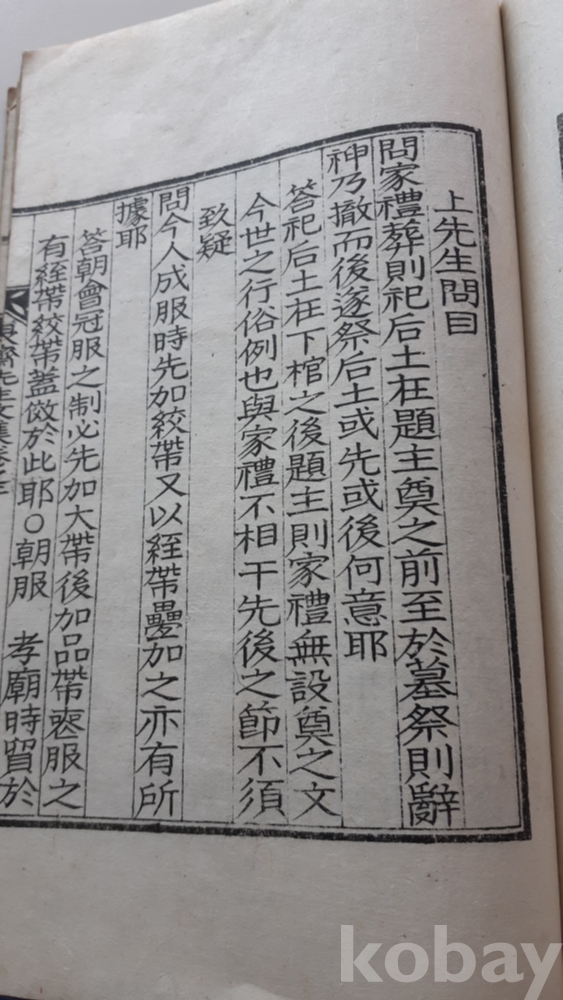 上先生問目
問家禮葬則祀后土在題主奠之前至於墓祭則辭
神乃撤而後遂祭后土或先或後何意耶
答祀后土在下棺之後題主則家禮無設奠之文
今世之行俗例也與家禮不相干先後之節不須
致疑
問今人成服時先加絞帶又以絰帶疊加之亦有所
據耶
答朝會冠服之制必先加大帶後加品帶喪服之
有絰帶絞帶蓋倣於此耶○朝服 孝廟時習於
齋先生文集卷之
kobay